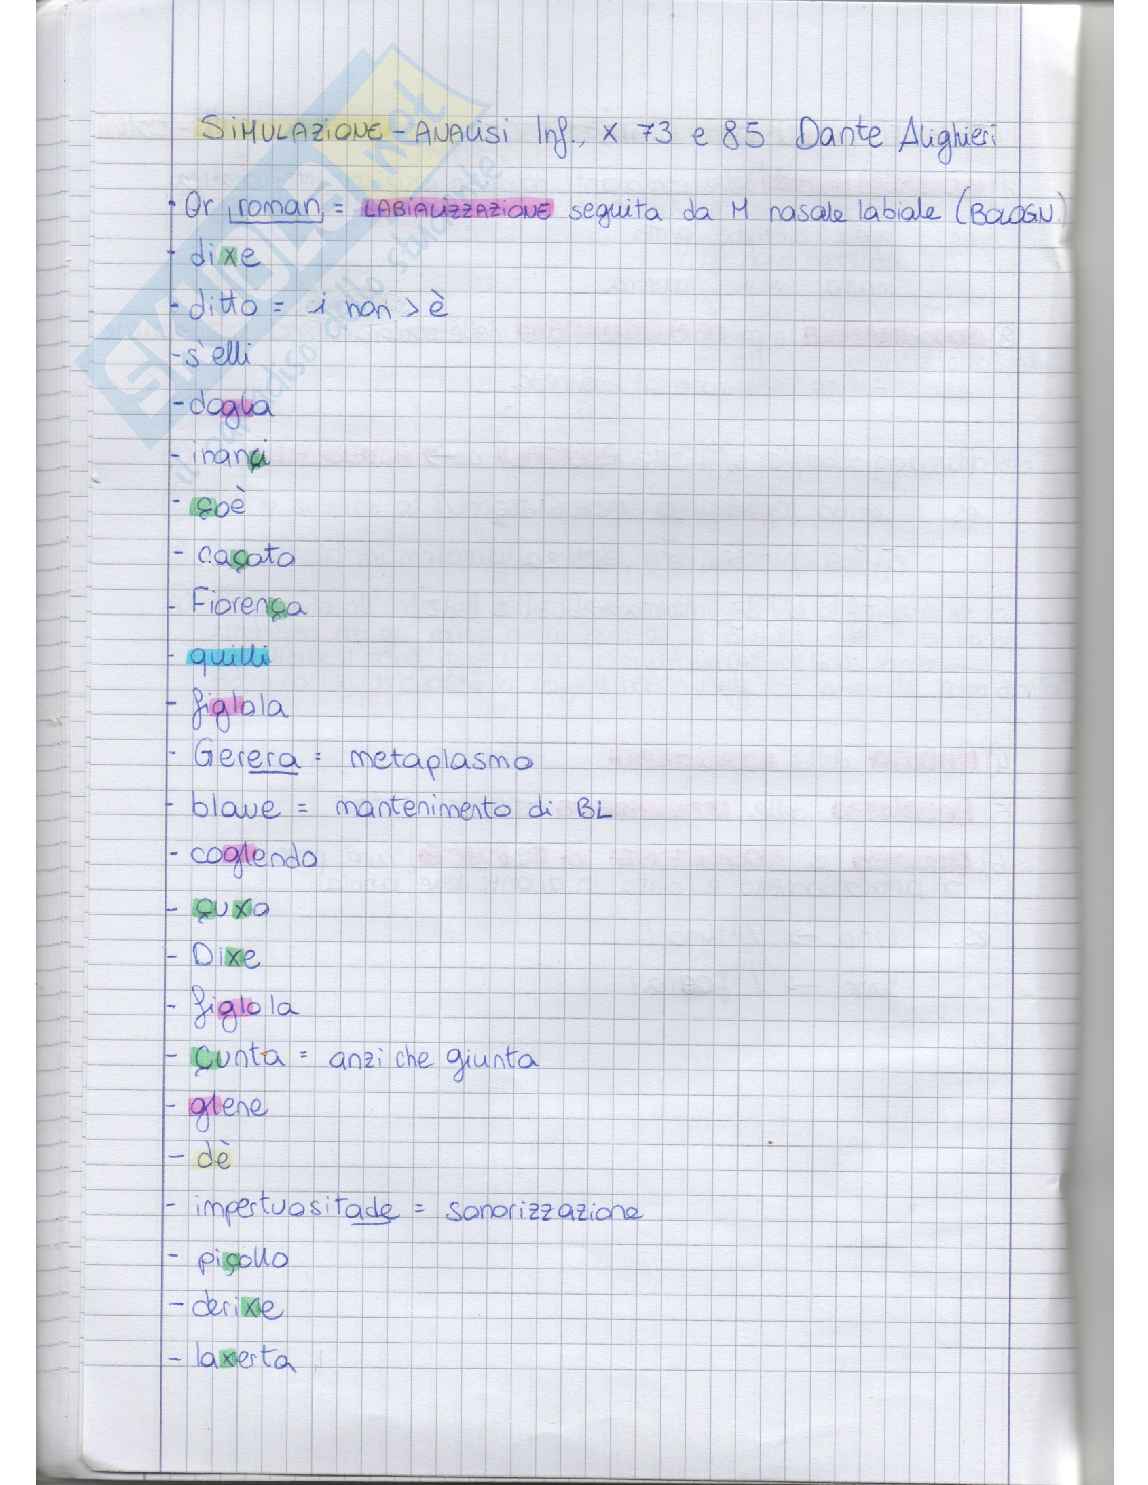 SIMULAZIONE - ANALISI Inf., X 73 e 85 Dante Alighieri
- Or roman = LABIALIZZAZIONE seguita da M nasale labiale (BOLOGN)
- dixe
- ditto = i non > è
- s'elli
- doglia
- inançi
- çoè
- caçato
- Fiorença
- quilli
- figlola
- Gerera = metaplasmo
- blave = mantenimento di BL
- coglendo
- çuxo
- Dixe
- figlola
- çunta = anzi che giunta
- glene
- dè
- impertuositade = sonorizzazione
- piçollo
- derixe
- laxerta
SKUOLA.net